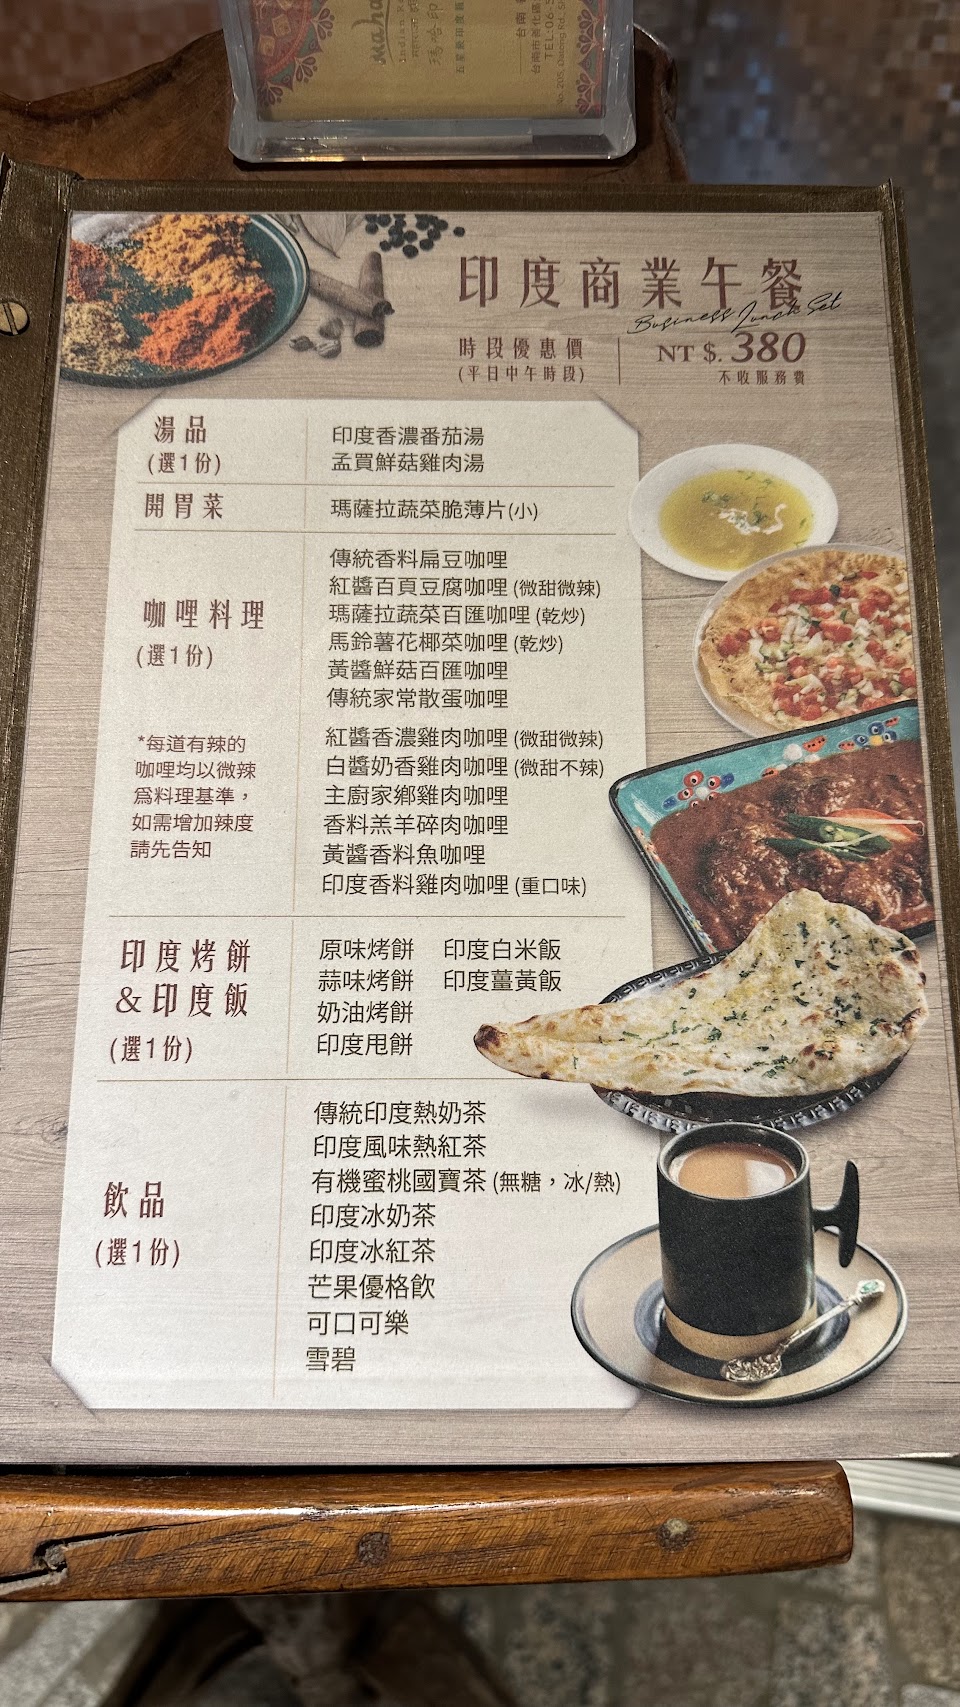 Indian
瑪哈印
五星級印度飯
台南
台南市善化區
TEL:06-5
印度商業午餐
Business Lunch Set
時段優惠價
(平日中午時段)
NT $. 380
不收服務費
湯品
(選1份)
印度香濃番茄湯
孟買鮮菇雞肉湯
開胃菜
瑪薩拉蔬菜脆薄片(小)
咖哩料理
(選1份)
*每道有辣的
咖哩均以微辣
為料理基準,
如需增加辣度
請先告知
傳統香料扁豆咖哩
紅醬百頁豆腐咖哩 (微甜微辣)
瑪薩拉蔬菜百匯咖哩 (乾炒)
馬鈴薯花椰菜咖哩 (乾炒)
黃醬鮮菇百匯咖哩
傳統家常散蛋咖哩
紅醬香濃雞肉咖哩 (微甜微辣)
白醬奶香雞肉咖哩 (微甜不辣)
主廚家鄉雞肉咖哩
香料羔羊碎肉咖哩
黃醬香料魚咖哩
印度香料雞肉咖哩 (重口味)
印度烤餅
&印度飯
(選1份)
原味烤餅 印度白米飯
蒜味烤餅 印度薑黃飯
奶油烤餅
印度甩餅
飲品
(選1份)
傳統印度熱奶茶
印度風味熱紅茶
有機蜜桃國寶茶 (無糖,冰/熱)
印度冰奶茶
印度冰紅茶
芒果優格飲
可口可樂
雪碧